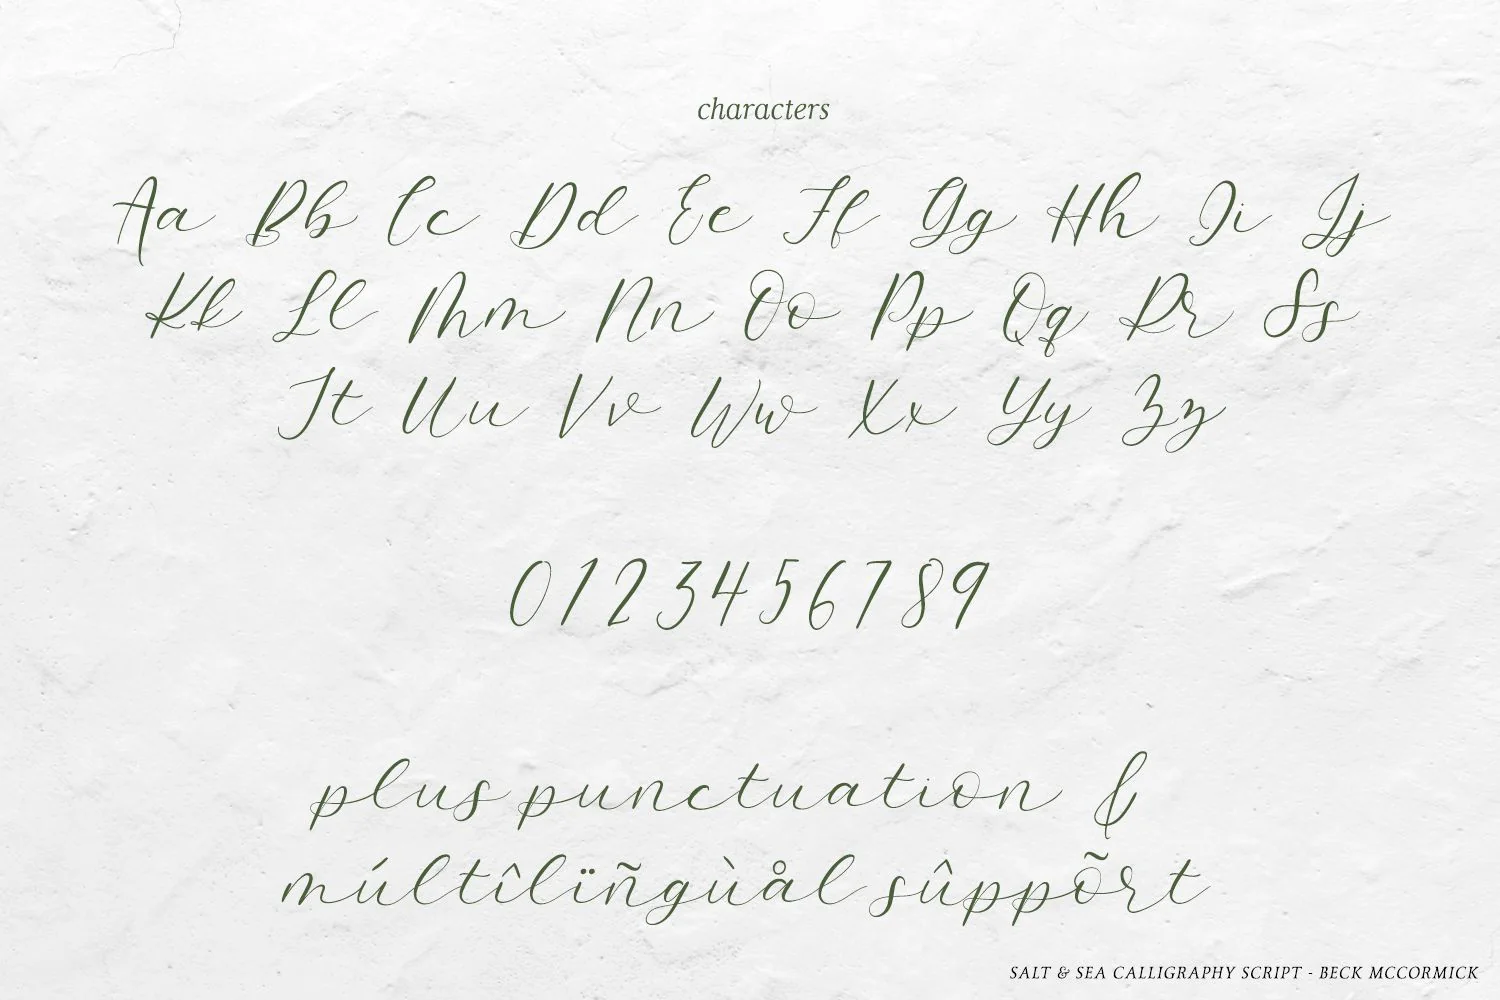 characters
Aa Bb Cc Dd Ee Ff Gg Hh Ii Jj
Kk Ll Mm Nn Oo Pp Qq Rr Ss
Tt Uu Vv Ww Xx Yy Zz
0 1 2 3 4 5 6 7 8 9
plus punctuation &
múltîlïñgùål sûppõrt
SALT & SEA CALLIGRAPHY SCRIPT - BECK MCCORMICK